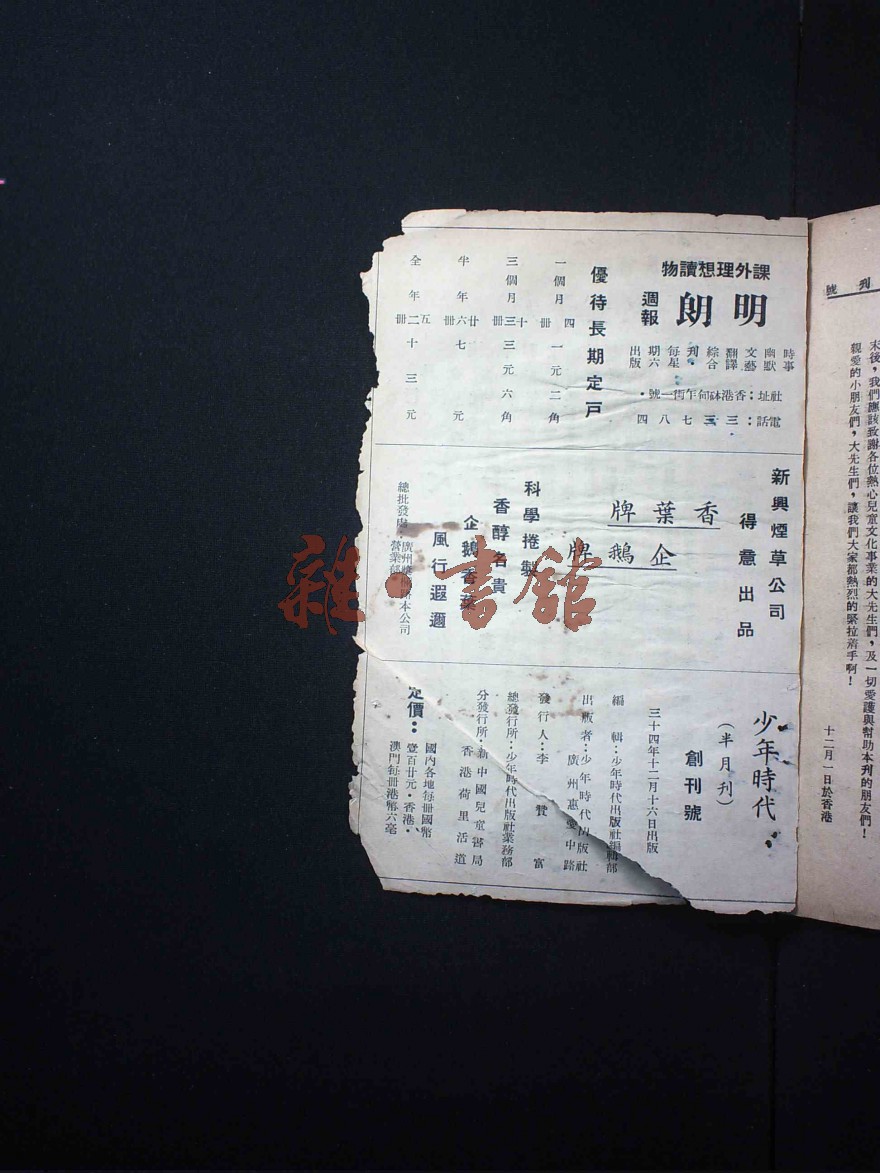 課外理想讀物
明朗
週報
時事
幽默
文藝
翻譯
綜合
刊・
每星
期六
出版
社址：香港砵甸乍街一號・
電話：三三七八四
優待長期定戶
一個月 四冊 一元二角
三個月 十三冊 三元六角
半年 廿六冊 七元
全年 五二冊 十三元
新興煙草公司
得意出品
香葉牌
企鵝牌
科學捲製
香醇名貴
企鵝香葉
風行遐邇
總批發處：廣州
本公司
營業部
少年時代：
（半月刊）
創刊號
三十四年十二月十六日出版
編輯：少年時代出版社編輯部
出版者：少年時代出版社
廣州惠愛中路
發行人：李贊富
總發行所：少年時代出版社業務部
分發行所：新中國兒童書局
香港荷里活道
定價：
國內各地每冊國幣
壹百廿元・香港、
澳門每冊港幣六毫
刊號
末後，我們應該致謝各位熱心兒童文化事業的大先生們，及一切愛護與幫助本刊的朋友們！
親愛的小朋友們，大先生們，讓我們大家都熱烈的緊拉着手啊！
十二月一日於香港
雜・書館